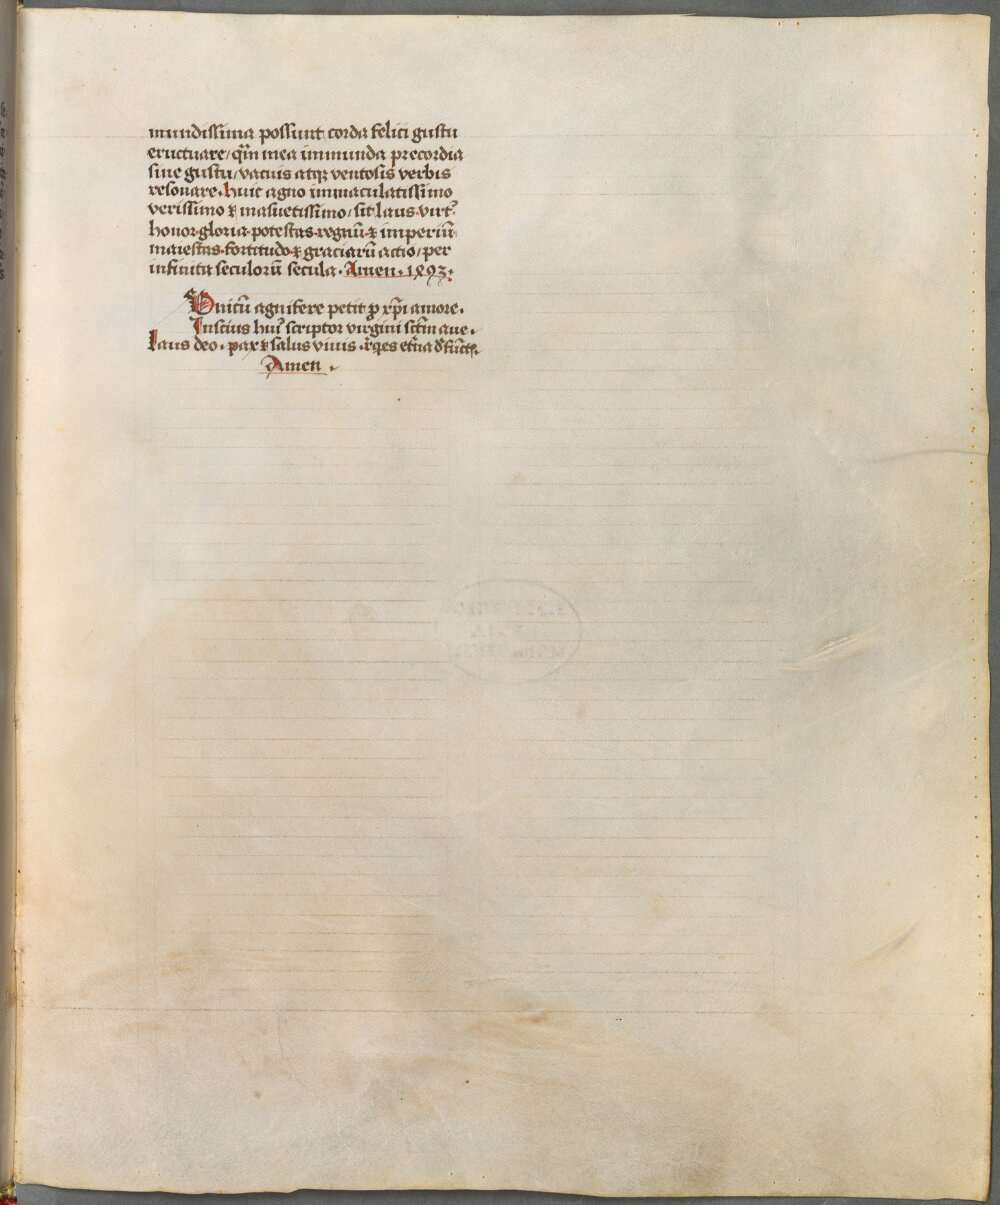 mundissima possunt corda felici gustu
eructuare / qm̄ mea immunda precordia
sine gustu / vacuis atqȝ ventosis verbis
resonare. huic agno immaculatissimo
verissimo ⁊ masuetissimo / sit laus. virtꝰ.
honor. gloria. potestas. regnū. ⁊ imperiū.
maiestas. fortitudo. ⁊ graciarū actio / per
infinita seculorū secula. Amen. 1893.
Vnicū agnifere petit ꝓ xp̄i amore.
Inscius huiꝰ scriptor virgini sctm̄ aue.
Laus deo. pax ⁊ salus viuis. rq̄es et̄na
Amen.